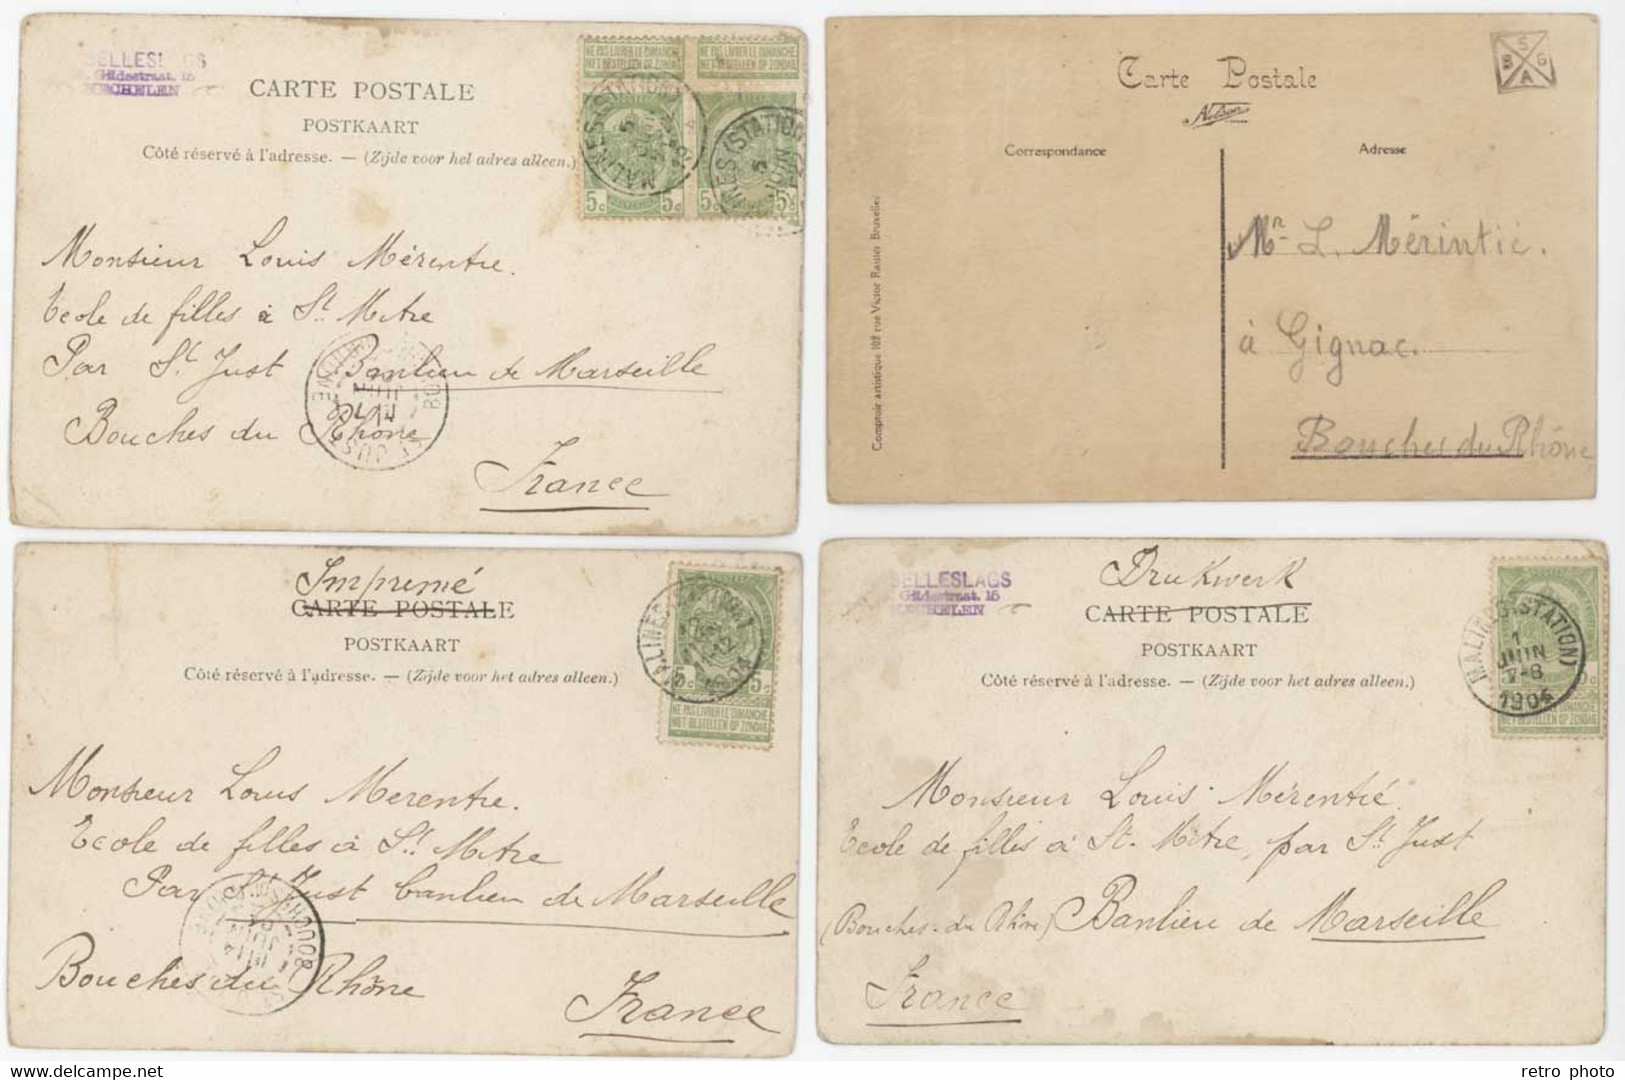 SELLESLAGS
Gildestraat. 15
MECHELEN
CARTE POSTALE
POSTKAART
Côté réservé à l'adresse. — (Zijde voor het adres alleen.)
NE PAS LIVRER LE DIMANCHE
NIET BESTELLEN OP ZONDAG
5c 5c
MALINES (STATION)
Monsieur Louis Mérentié.
Ecole de filles à St Mitre
Par St Just Banlieu de Marseille
Bouches du Rhône
France
Carte Postale
S
B G
A
Nelson
Correspondance
Adresse
Comptoir artistique 108 rue Victor Rauter Bruxelles
Mr L. Mérintié.
à Gignac.
Bouches du Rhône
Imprimé
CARTE POSTALE
POSTKAART
Côté réservé à l'adresse. — (Zijde voor het adres alleen.)
5c 5c
NE PAS LIVRER LE DIMANCHE
NIET BESTELLEN OP ZONDAG
Monsieur Louis Merentie.
Ecole de filles à St Mitre
Par St Just banlieu de Marseille
Bouches du Rhône
France
SELLESLAGS
Gildestraat. 15
MECHELEN
Drukwerk
CARTE POSTALE
POSTKAART
Côté réservé à l'adresse. — (Zijde voor het adres alleen.)
MALINES (STATION)
1
JUIN
7-8
1904
NE PAS LIVRER LE DIMANCHE
NIET BESTELLEN OP ZONDAG
Monsieur Louis Mérentié.
Ecole de filles à St. Mitre, par St Just
(Bouches-du Rhône) Banlieu de Marseille
France
delcampe.net
retro photo